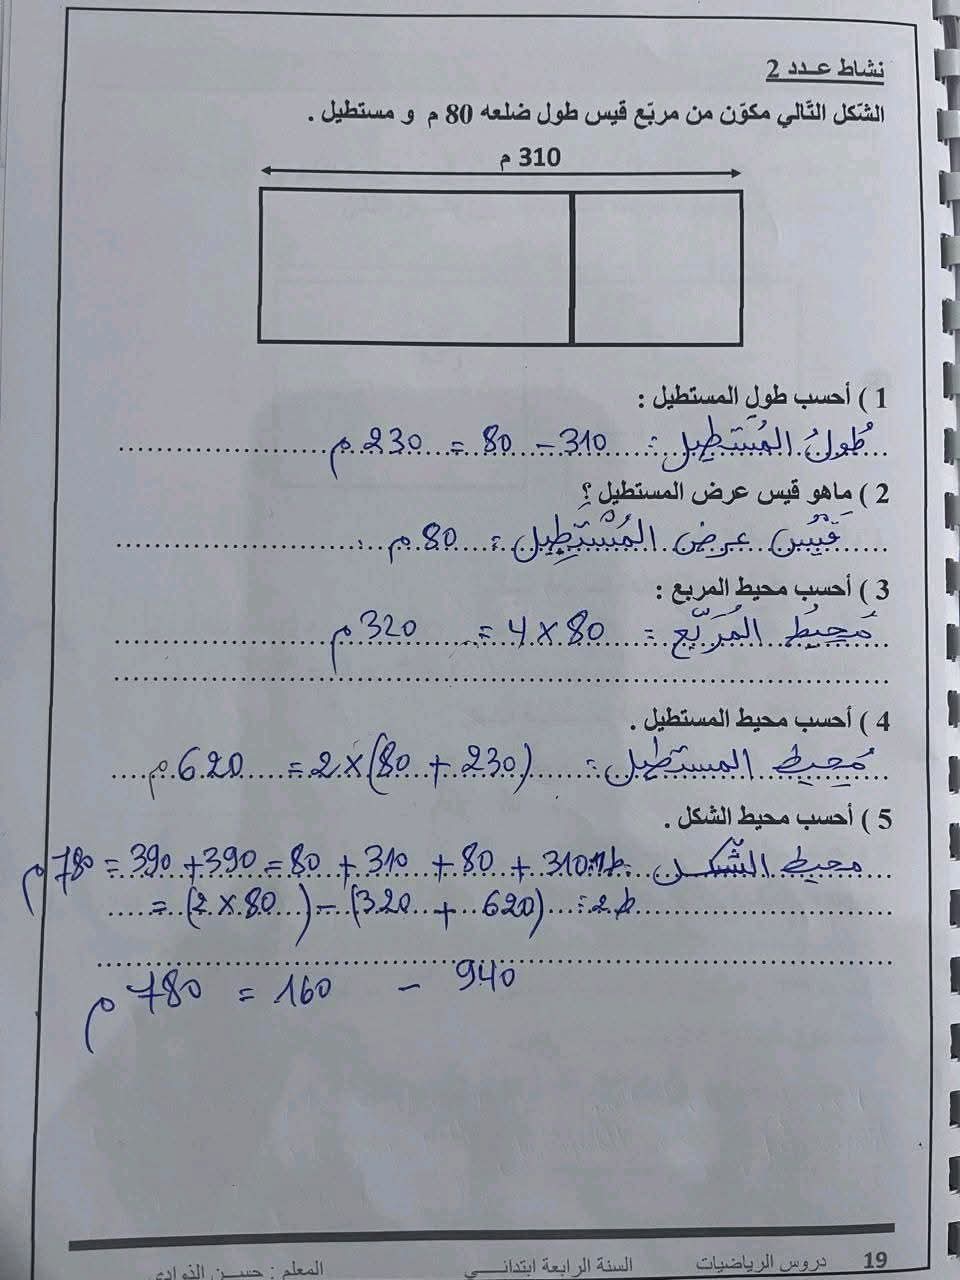 نشاط عـدد 2
الشكل التالي مكوّن من مربّع قيس طول ضلعه 80 م و مستطيل .
310 م
1 ) أحسب طول المستطيل :
طُولُ المُسْتَطِيل : 310 - 80 = 230 م
2 ) ماهو قيس عرض المستطيل ؟
قَيْسُ عرض المُسْتَطِيل : 80 م
3 ) أحسب محيط المربع :
مُحِيطُ المُرَبّع = 80 × 4 = 320 م
4 ) أحسب محيط المستطيل .
مُحِيط المستطيل : (230 + 80) × 2 = 620 م
5 ) أحسب محيط الشكل .
محيط الشّكل ط1: 310 + 80 + 310 + 80 = 390 + 390 = 780 م
ط2 : (620 + 320) - (80 × 2) =
940 - 160 = 780 م
19 دروس الرياضيات السنة الرابعة ابتدائـــي المعلم : حســن الذوادي